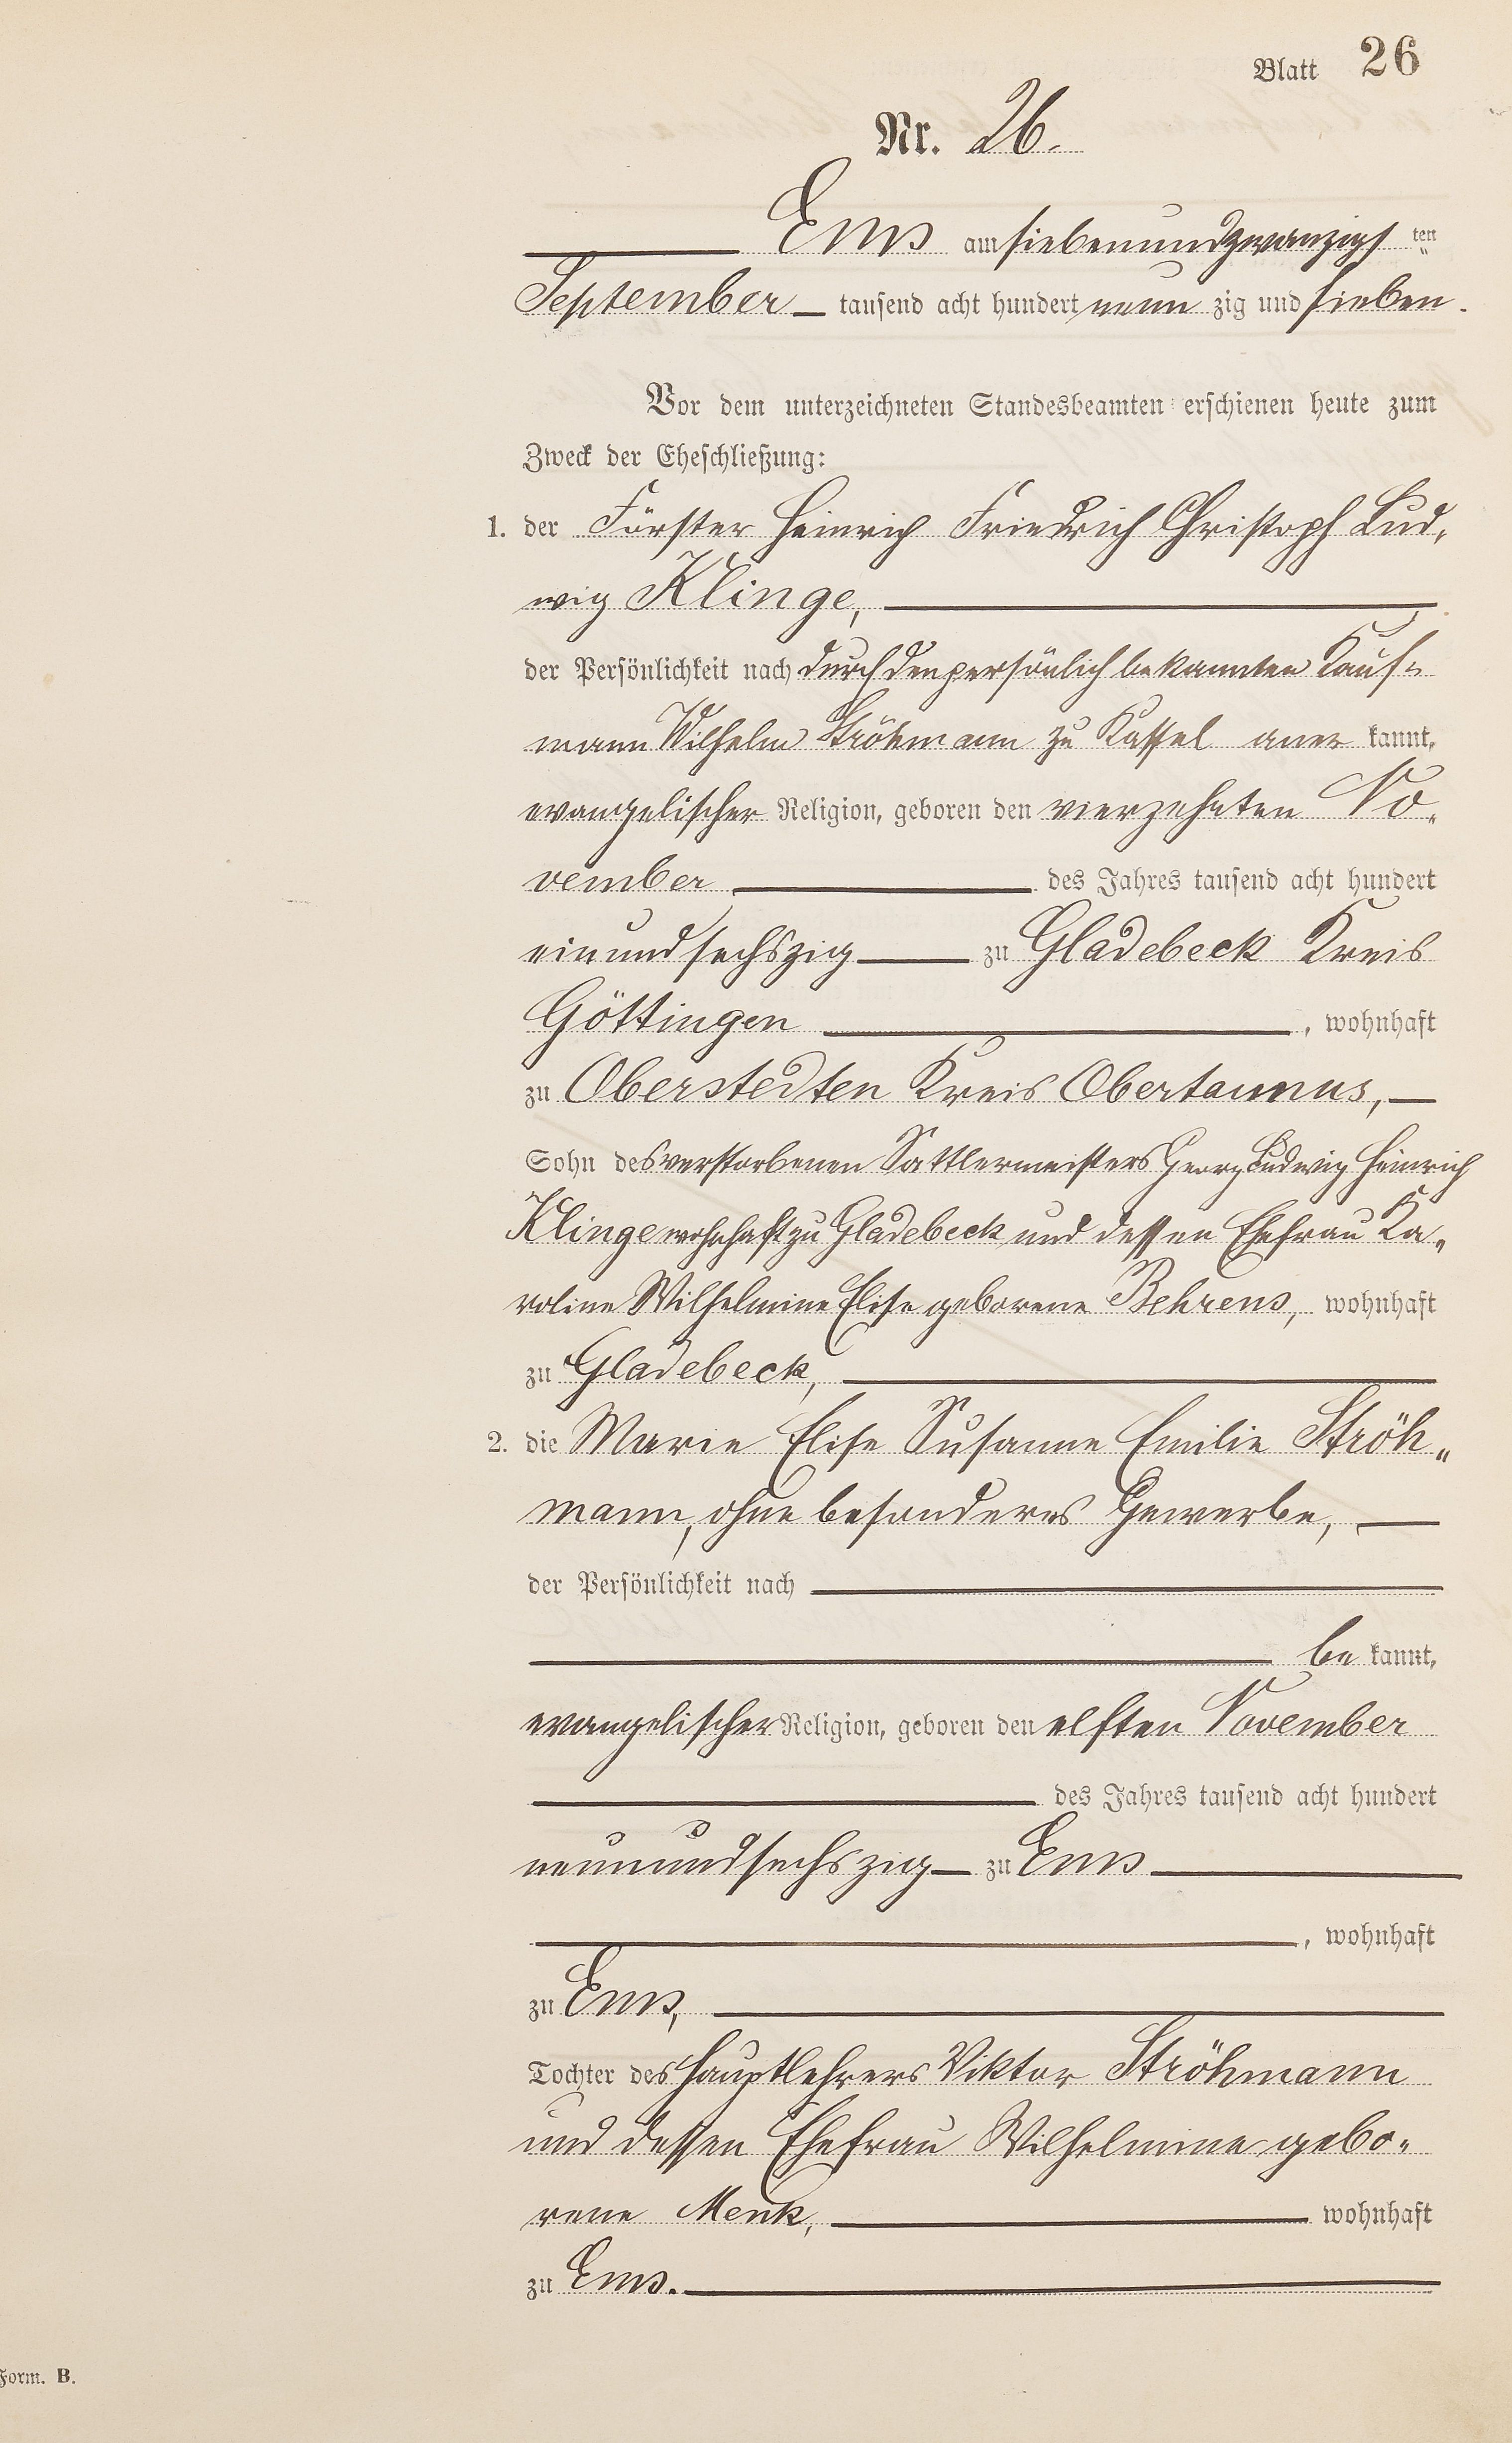 Blatt 26
Nr. 26.
Ems am siebenundzwanzigsten
September tausend acht hundert neunzig und sieben.
Vor dem unterzeichneten Standesbeamten erschienen heute zum
Zweck der Eheschließung:
1. der Förster Heinrich Friedrich Christoph Lud-
wig Klinge,
der Persönlichkeit nach durch den persönlich bekannten Kauf-
mann Wilhelm Ströhmann zu Kassel anerkannt,
evangelischer Religion, geboren den vierzehnten No-
vember des Jahres tausend acht hundert
einundsechszig zu Gladebeck Kreis
Göttingen, wohnhaft
zu Oberstedten Kreis Obertaunus,
Sohn des verstorbenen Sattlermeisters Georg Ludwig Heinrich
Klinge wohnhaft zu Gladebeck und dessen Ehefrau Ka-
roline Wilhelmine Elise geborene Behrens, wohnhaft
zu Gladebeck,
2. die Marie Elise Susanne Emilie Ströh-
mann, ohne besonderes Gewerbe,
der Persönlichkeit nach
bekannt,
evangelischer Religion, geboren den elften November
des Jahres tausend acht hundert
neunundsechszig zu Ems
, wohnhaft
zu Ems,
Tochter des Hauptlehrers Viktor Ströhmann
und dessen Ehefrau Wilhelmine gebo-
rene Menk, wohnhaft
zu Ems.
Form. B.